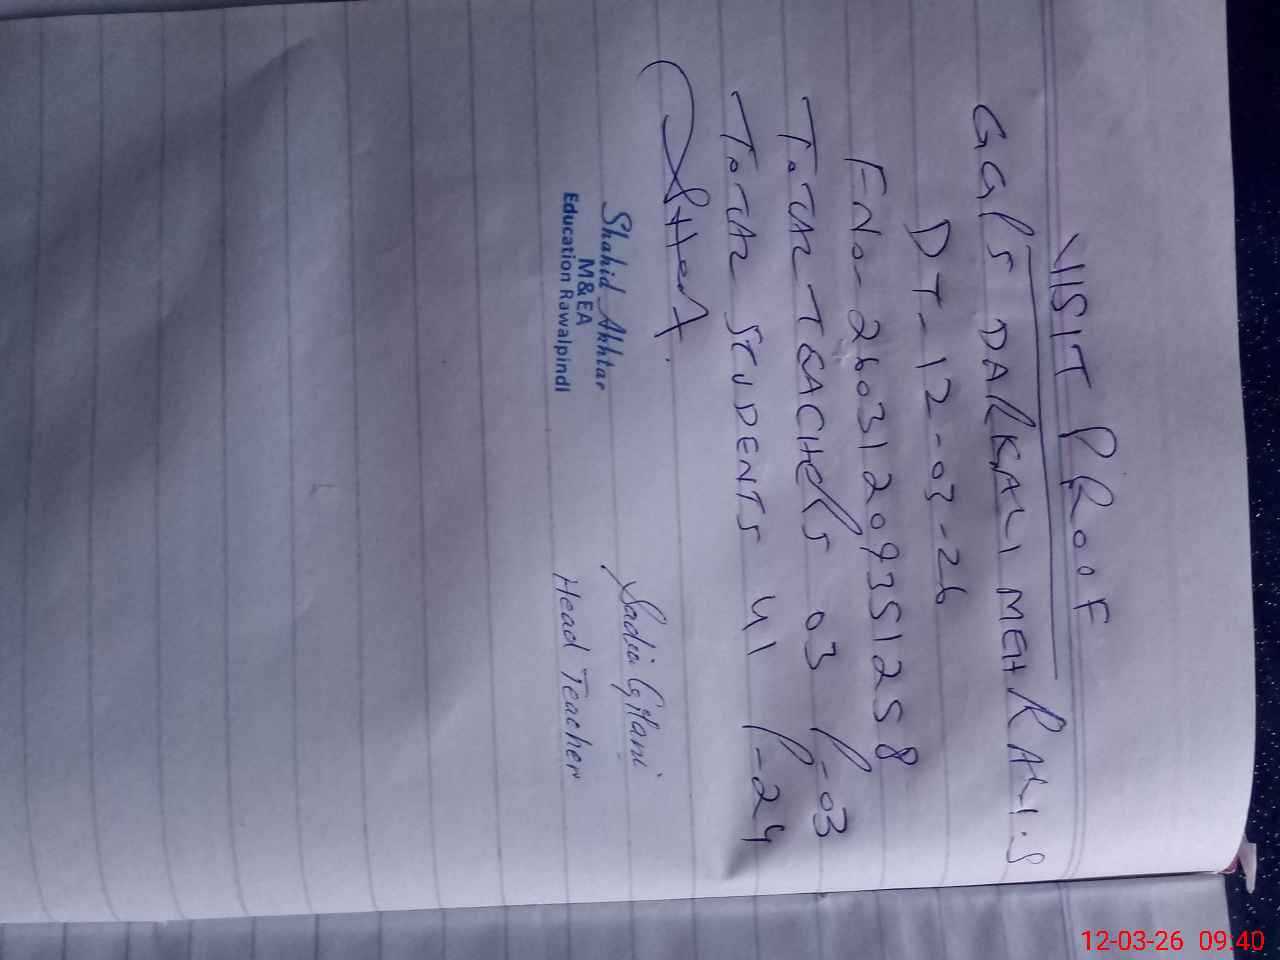 VISIT PROOF
GGPS DARKALI MEHRALI.S
DT-12-03-26
FNo-260312093512 58
TOTAL TEACHERS 03 P-03
TOTAL STUDENTS 41 P-24
Shahid Akhtar
M&EA
Education Rawalpindi
Sadia Gilani
Head Teacher
12-03-26 09:40